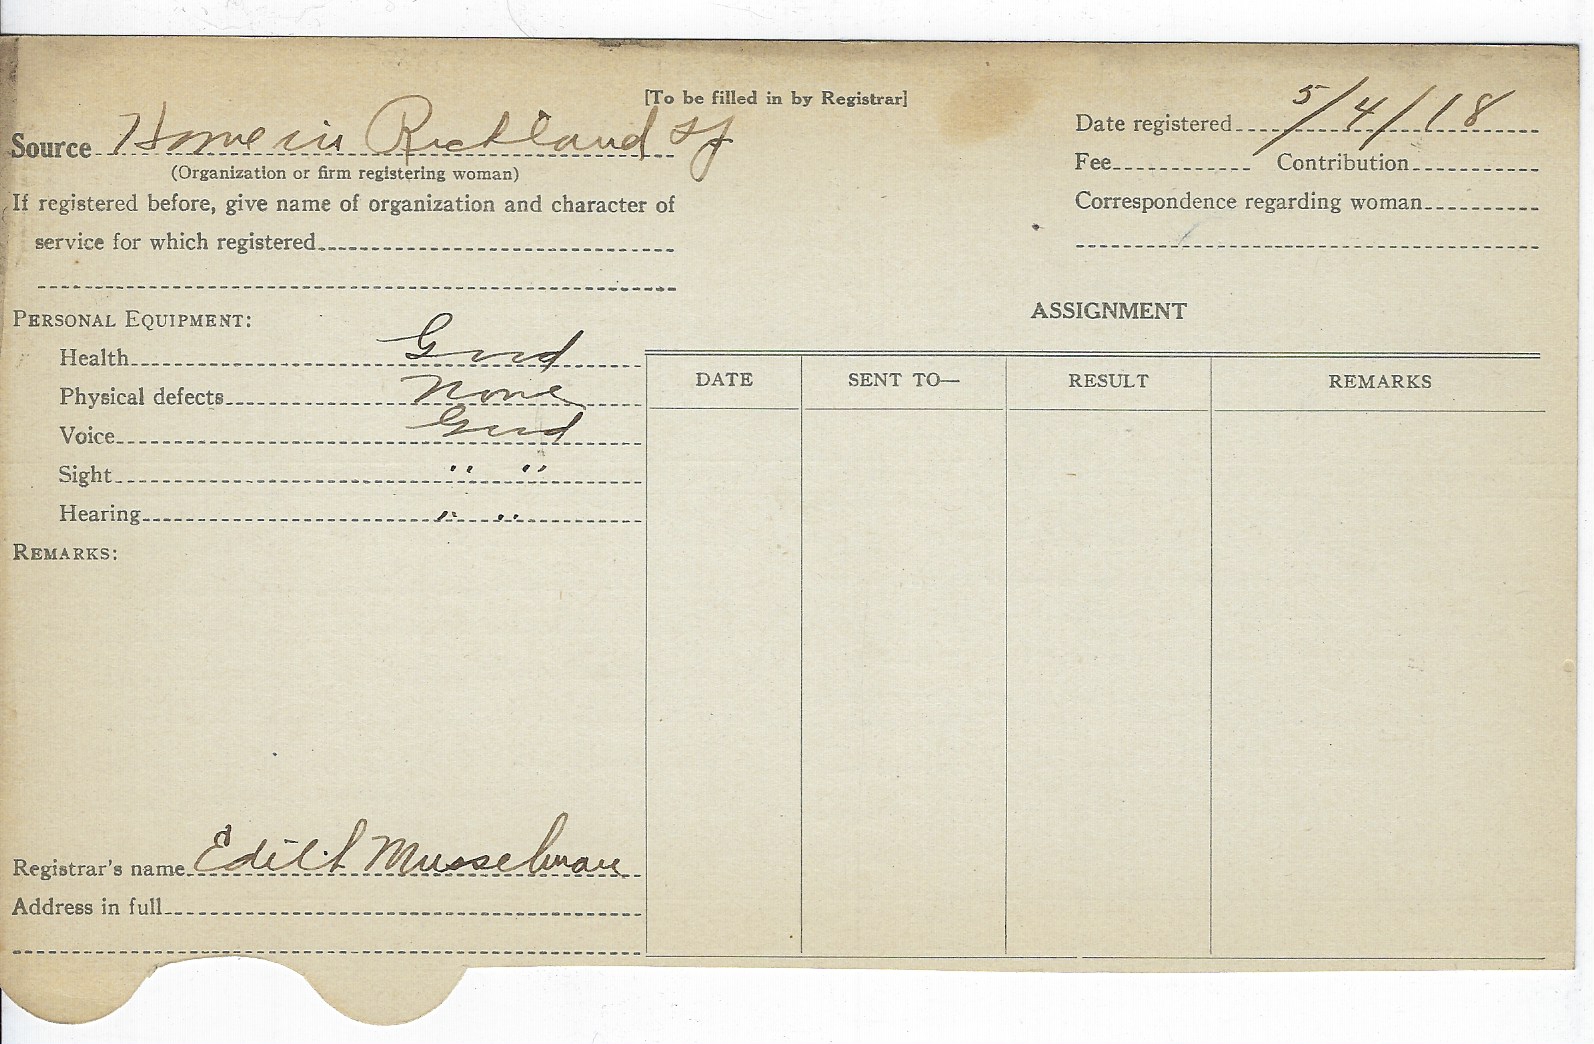 [To be filled in by Registrar]
Source Home in Richland
(Organization or firm registering woman)
If registered before, give name of organization and character of
service for which registered
Date registered 5/4/18
Fee Contribution
Correspondence regarding woman
PERSONAL EQUIPMENT:
Health Good
Physical defects None
Voice Good
Sight " "
Hearing " "
REMARKS:
Registrar's name Edith Musselman
Address in full
ASSIGNMENT
DATE SENT TO— RESULT REMARKS